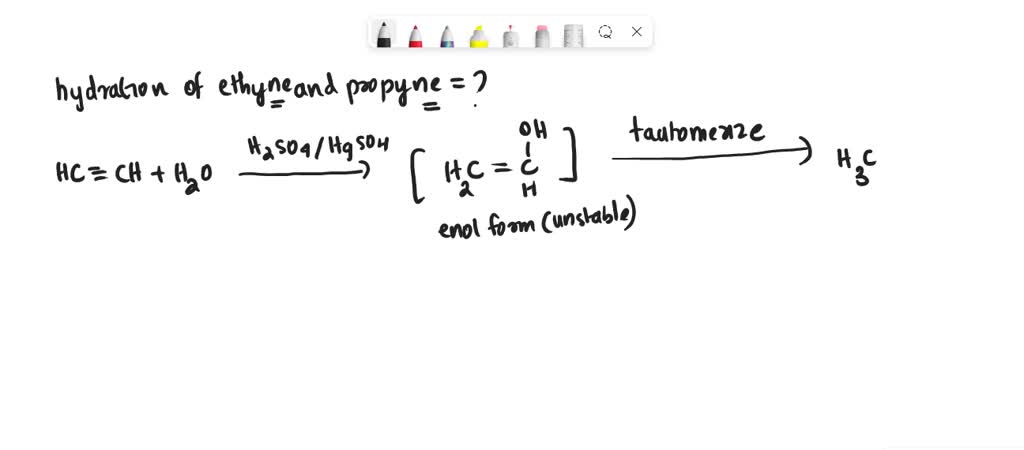 hydration of ethyne and propyne = ?
HC ≡ CH + H2O H2SO4/HgSO4 [H2C = C OH H] tautomerize H3C
enol form (unstable)